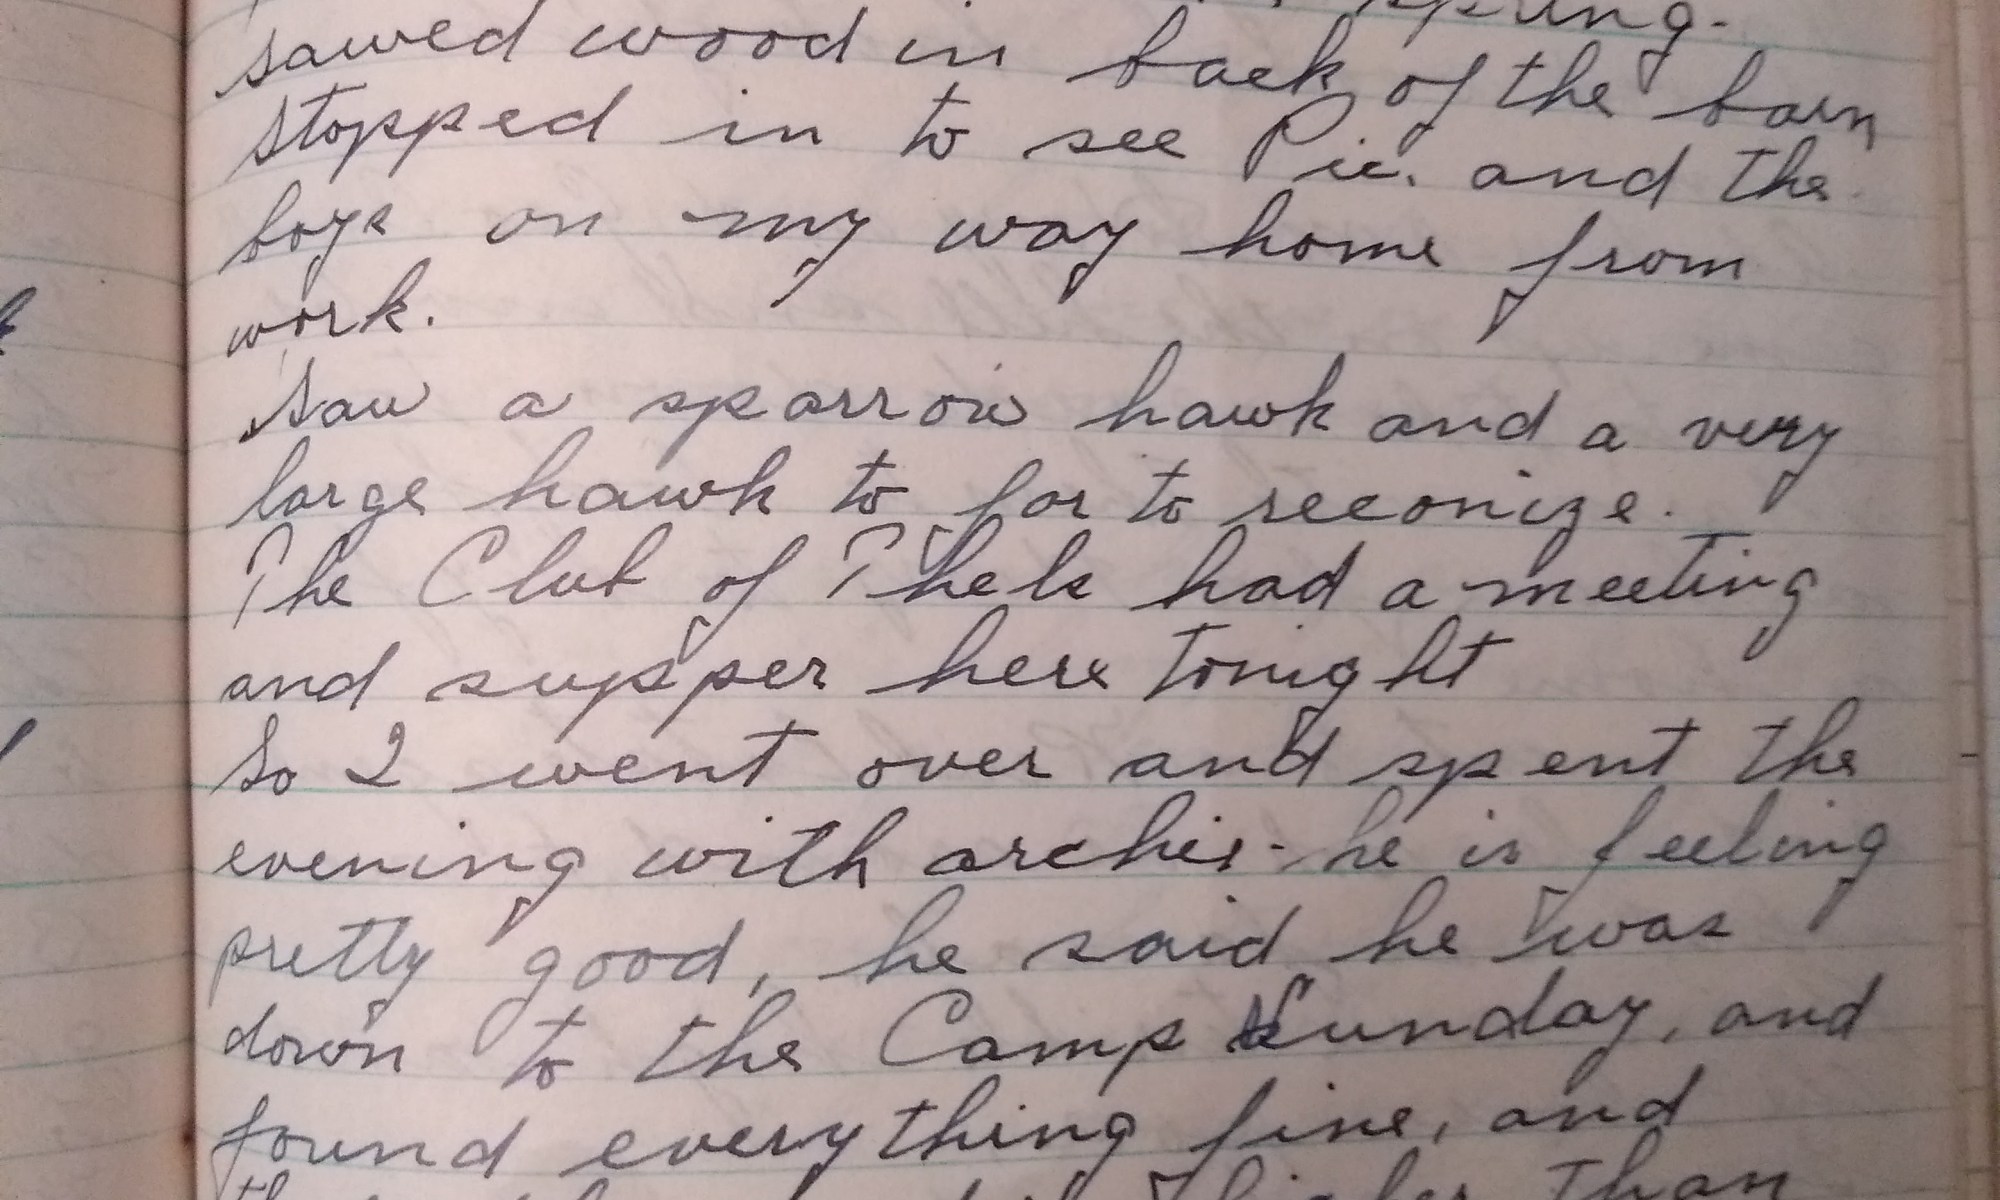 spring.
sawed wood in back of the barn
stopped in to see Pic. and the
boys on my way home from
work.
Saw a sparrow hawk and a very
large hawk to far to reconize.
The Club of Thels had a meeting
and supper here tonight
So I went over and spent the
evening with archie - he is feeling
pretty good, he said he was
down to the Camp Sunday, and
found everything fine, and
than